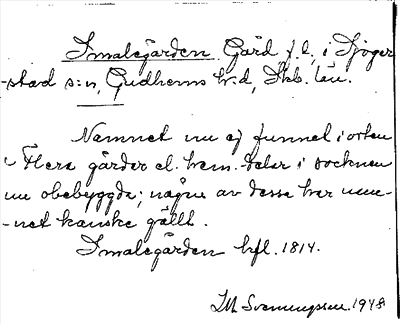 Smalegården. Gård f.l., i Sjoger
-stad s:n, Gudhems h:d, Skb. län.
Namnet nu ej funnet i orten
Flera gårder el. hem. delar i socknen
nu obebyggda; några av dessa har nam-
-net kanske gällt.
Smalegården hfl. 1814.
IM Svenungsson. 1948